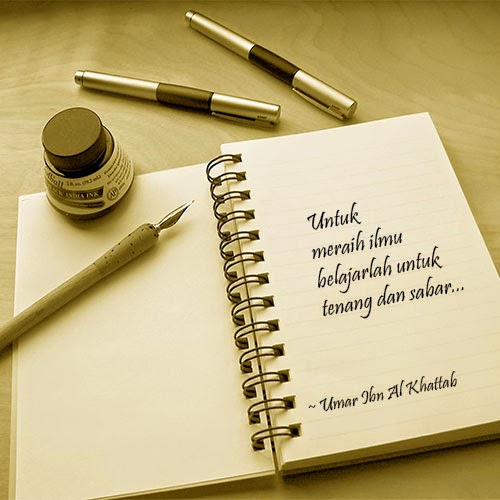 INDIA INK
Untuk
meraih ilmu
belajarlah untuk
tenang dan sabar...
~ Umar Ibn Al Khattab